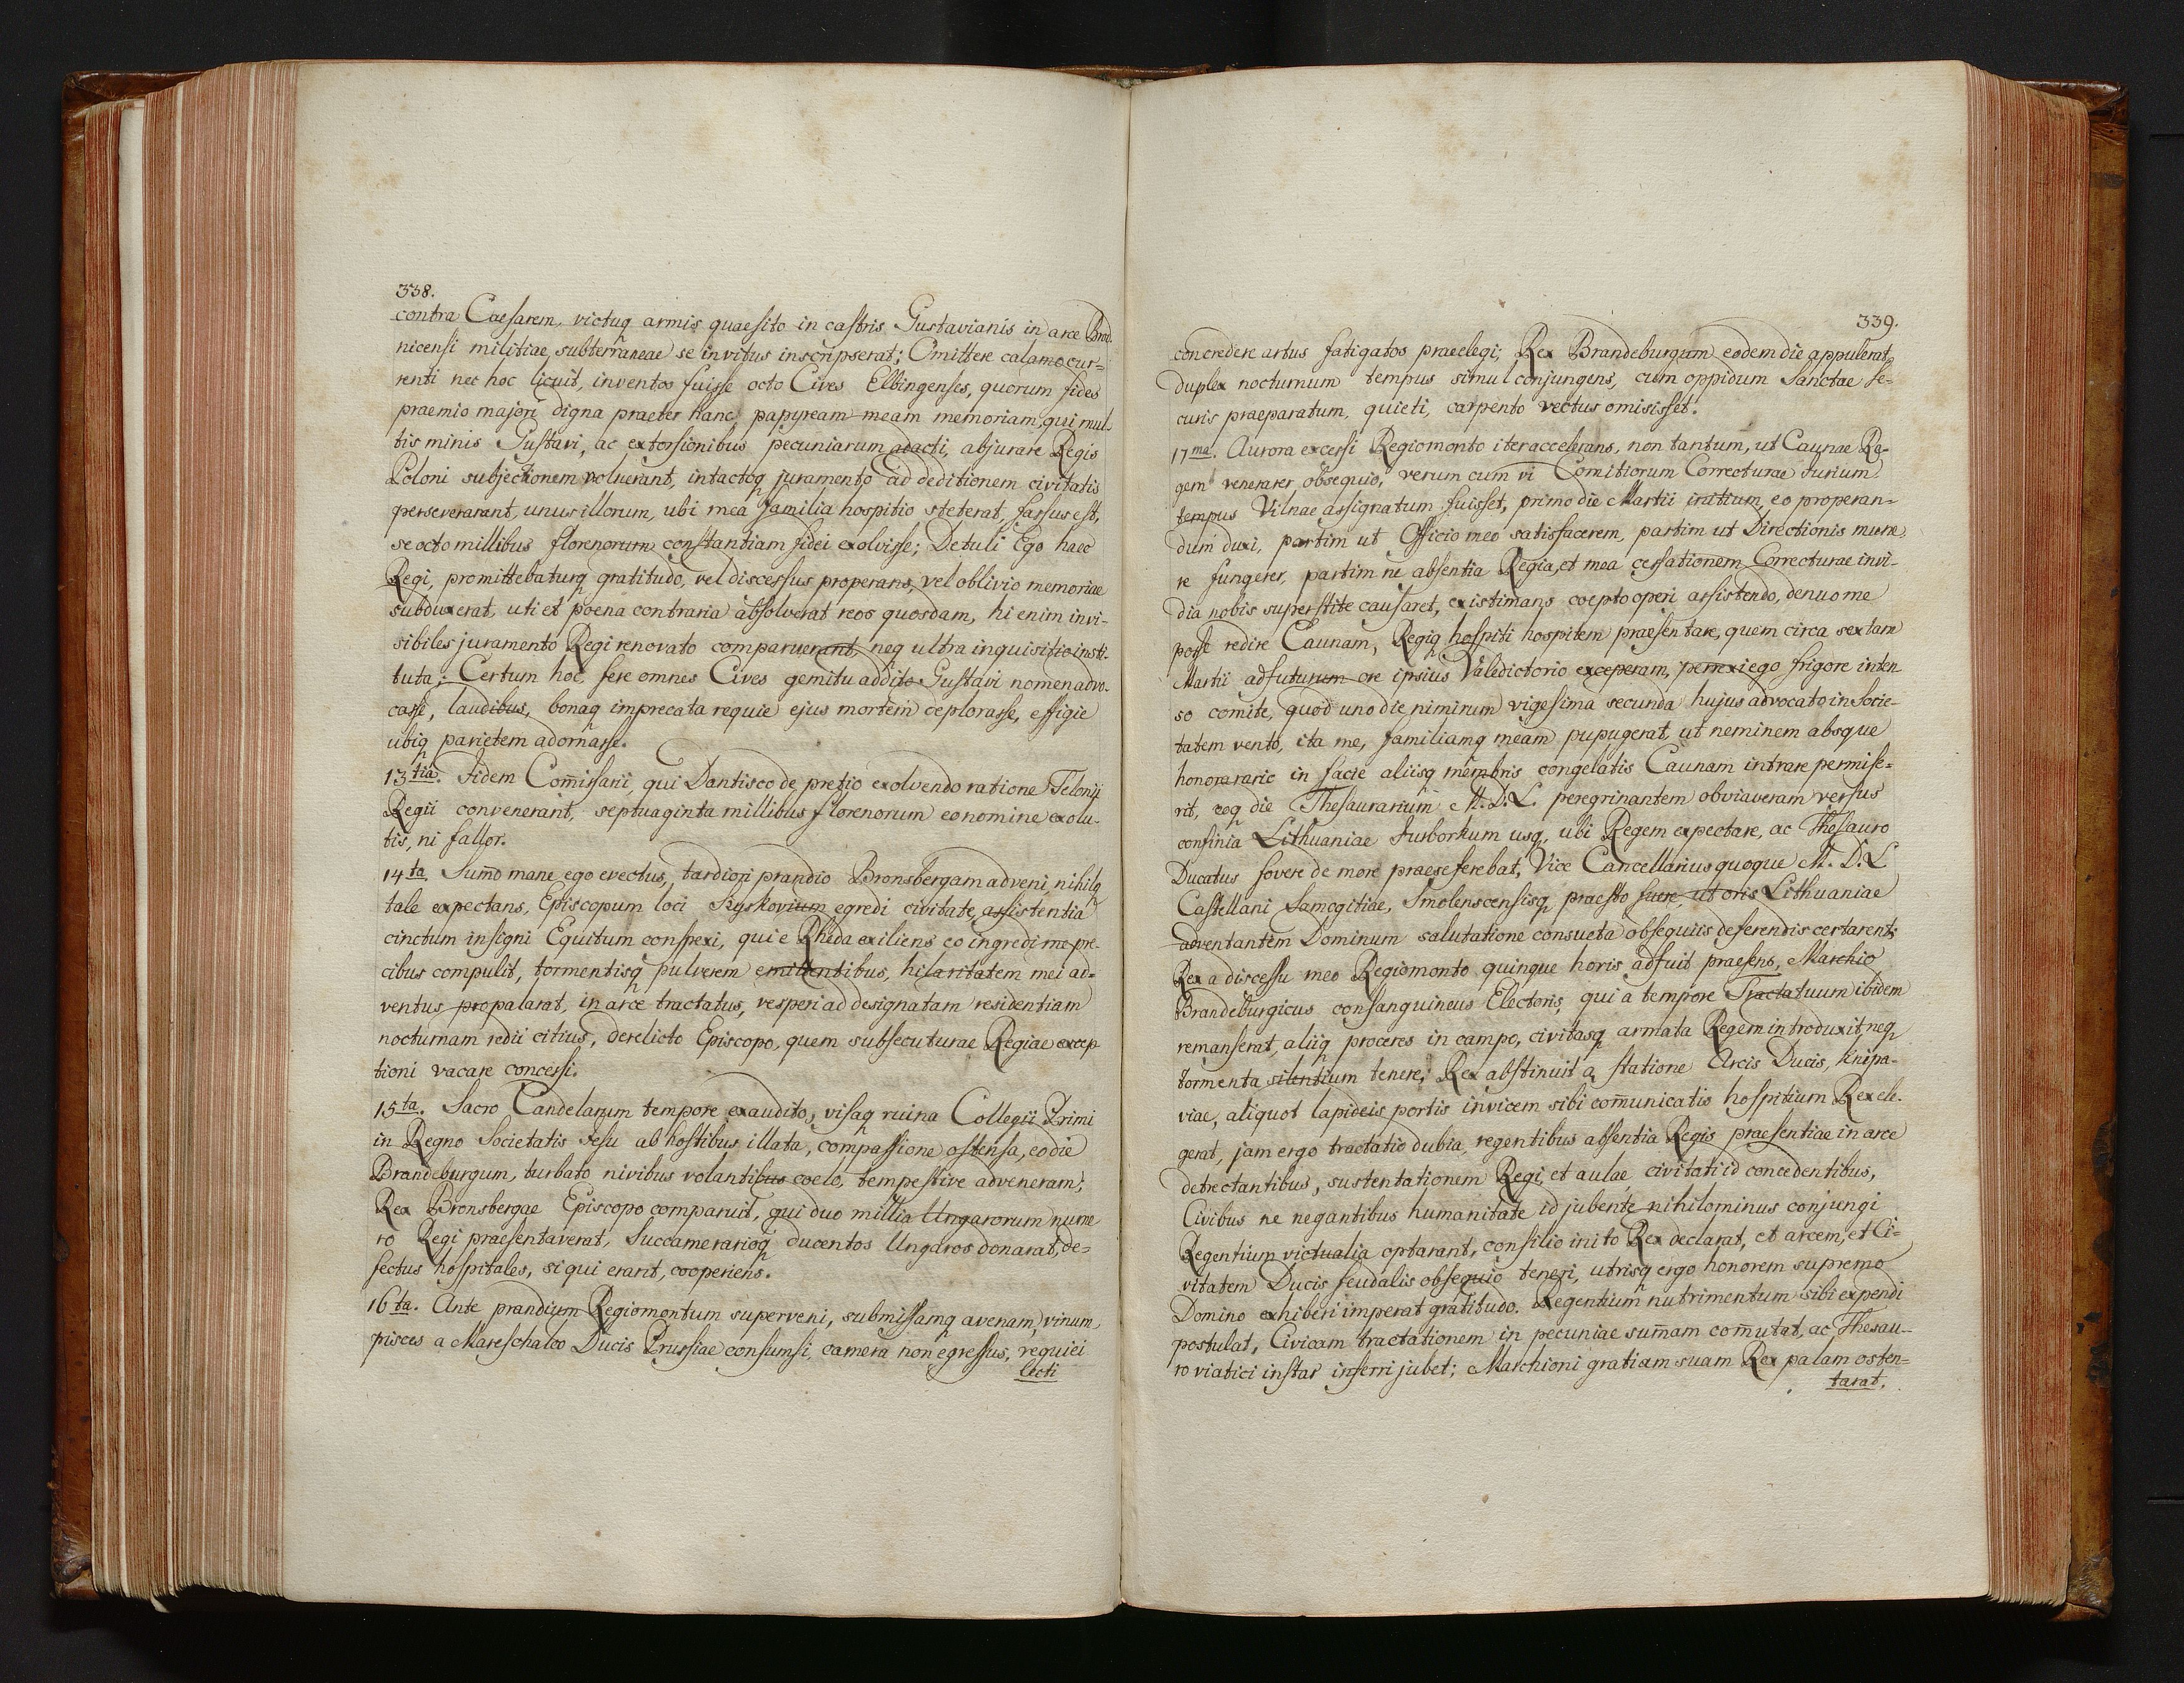 338.
contra Caesarem, victuq armis quaesito in castris Gustavianis in arce Brod
nicensi militiae subterraneae se invitus inscripserat; Omittere calamo cur=
renti nec hoc licuit, inventos fuisse octo Cives Elbingenses, quorum fides
praemio majori digna praeter hanc papyream meam memoriam, qui mul-
tis minis Gustavi, ac extorsionibus pecuniarum adacti, abjurare Regis
Poloni subjectionem noluerant, intactoq juramento ad deditionem civitatis
perseverarant, unus illorum, ubi mea familia hospitio steterat, fassus est,
se octo millibus florenorum constantiam fidei exolvisse; Detuli Ego haec
Regi, promittebaturq gratitudo, vel discessus properans, vel oblivio memoriae
subduxerat, uti et poena contraria absolverat reos quosdam, hi enim invi-
sibiles juramento Regi renovato comparuerant, neq ultra inquisitio insti-
tuta; Certum hoc, fere omnes Cives gemitu addito Gustavi nomen advo-
casse, laudibus, bonaq imprecata requie ejus mortem deplorasse, effigie
ubiq parietem adornasse.
13tia. Iidem Comissarii, qui Dantisco de pretio exolvendo ratione Telonij
Regii convenerant, septuaginta millibus florenorum eo nomine exolu-
tis, ni fallor.
14ta. Sumo mane ego evectus, tardiori prandio Bronsbergam adveni, nihilq
tale expectans, Episcopum loci Szyskovium egredi civitate, assistentia
cinctum insigni Equitum conspexi, qui e Rheda exiliens eo ingredi me pre-
cibus compulit, tormentisq pulverem emittentibus, hilaritatem mei ad=
ventus propalarat, in arce tractatus, vesperi ad designatam residentiam
nocturnam redii citius, derelicto Episcopo, quem subsecuturae Regiae excep
tioni vacare concessi.
15ta. Sacro Candelarum tempore exaudito, visaq ruina Collegii Primi
in Regno Societatis Jesu ab hostibus illata, compassione ostensa, eo die
Brandeburgum, turbato nivibus volantibus coelo, tempestive adveneram;
Rex Bronsbergae Episcopo comparuit, qui duo millia Ungarorum nume
ro Regi praesentaverat, Succamerarioq ducentos Ungaros donarat, de=
fectus hospitales, si qui erant, cooperiens.
16ta. Ante prandium Regiomontum superveni, submissamq avenam, vinum
pisces a Mareschalco Ducis Prussiae consumsi, camera non egressus, requiei
lecti
339.
concredere artus fatigatos praeelegi; Rex Brandeburgum eodem die appulerat,
duplex nocturnum tempus simul conjungens, cum oppidum Sanctae se-
curis praeparatum, quieti, carpento vectus omisisset.
17ma. Aurora excessi Regiomonto iter accelerans, non tantum, ut Caunae Re-
gem venerarer obsequio, verum cum vi Comitiorum Correcturae Iurium
tempus Vilnae assignatum fuisset, primo die Martii initium, eo properan-
dum duxi, partim ut Officio meo satisfacerem, partim ut Directionis mune
re fungerer, partim ne absentia Regia, et mea cessationem Correcturae invi-
dia nobis superstite causaret, existimans coepto operi assistendo, denuo me
posse redire Caunam, Regiq hospiti hospitem praesentare, quem circa sextam
Martii adfuturum ore ipsius Valedictorio exceperam, perrexi ego frigore inten
so comite, quod uno die nimirum vigesima secunda hujus advocato in Socie-
tatem vento, ita me, familiamq meam pupugerat, ut neminem absque
honorarario in facie aliisq membris congelatis Caunam intrare permise=
rit, eoq die Thesaurarium M. D. L. peregrinantem obviaveram versus
confinia Lithuaniae Jurborkum usq, ubi Regem expectare, ac Thesauro
Ducatus fovere de more praeseferebat, Vice Cancellarius quoque M. D. L
Castellani Samogitiae, Smolenscensisq praesto fuere, ut oris Lithuaniae
adventantem Dominum salutatione consueta obsequiis deferendis certarent;
Rex a discessu meo Regiomonto quinque horis adfuit praesens, Marchio
Brandeburgicus consanguineus Electoris, qui a tempore Tractatuum ibidem
remanserat, aliiq proceres in campo, civitasq armata Regem introduxit, neq
tormenta silentium tenere; Rex abstinuit a statione Arcis Ducis, Knipa-
viae, aliquot lapideis portis invicem sibi comunicatis hospitium Rex ele-
gerat, jam ergo tractatio dubia, regentibus absentia Regis praesentiae in arce
detrectantibus, sustentationem Regi, et aulae civitati id concedentibus,
Civibus ne negantibus humanitate id jubente nihilominus conjungi
Regentium victualia optarant, consilio inito Rex declarat, et arcem, et Ci-
vitatem Ducis feudalis obsequio teneri, utrisq ergo honorem supremo
Domino exhiberi imperat gratitudo. Regentium nutrimentum sibi expendi
postulat, Civicam tractationem in pecuniae sumam comutat, ac Thesau-
ro viatici instar inferri jubet; Marchioni gratiam suam Rex palam osten=
tarat.